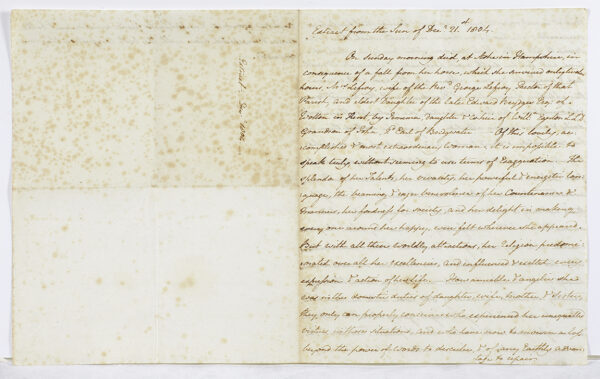 Extract from the Sun of Decr. 21st. 1804.
On Sunday morning died, at Ashe in Hampshire, in
consequence of a fall from her horse, which she survived only twelve
hours Mrs. Lefroy, wife of the Revd. George Lefroy, Rector of that
Parish, and eldest Daughter of the late Edward Brydges Esqr. of
Wotton in Kent, by Jemima, daughter & coheir of Willm. Egerton L.L.D.
Grandson of John, Earl of Bridgwater. Of this lovely, ac
complished & most extraordinary Woman, it is impossible to
speak truly, without seeming to use terms of Exaggeration. The
splendor of her Talents, her vivacity, her powerful & energetic lan
guage, the beaming & eager benevolence of her Countenance &
manners, her fondness for society, and her delight in making
every one around her happy, were felt wherever she appeared.
But with all these worldly attractions, her Religion predomi
nated over all her excellencies, and influenced & exalted every
expression & action of her life. How amiable, & angelic she
was in the domestic duties of daughter, wife, mother & sister,
they only can properly conceive who experienced her unequalled
virtues in those situations, and who have now to mourn a loss
beyond the power of words to describe, & of any Earthly advan
tage to repair.
Extract Sun 1804